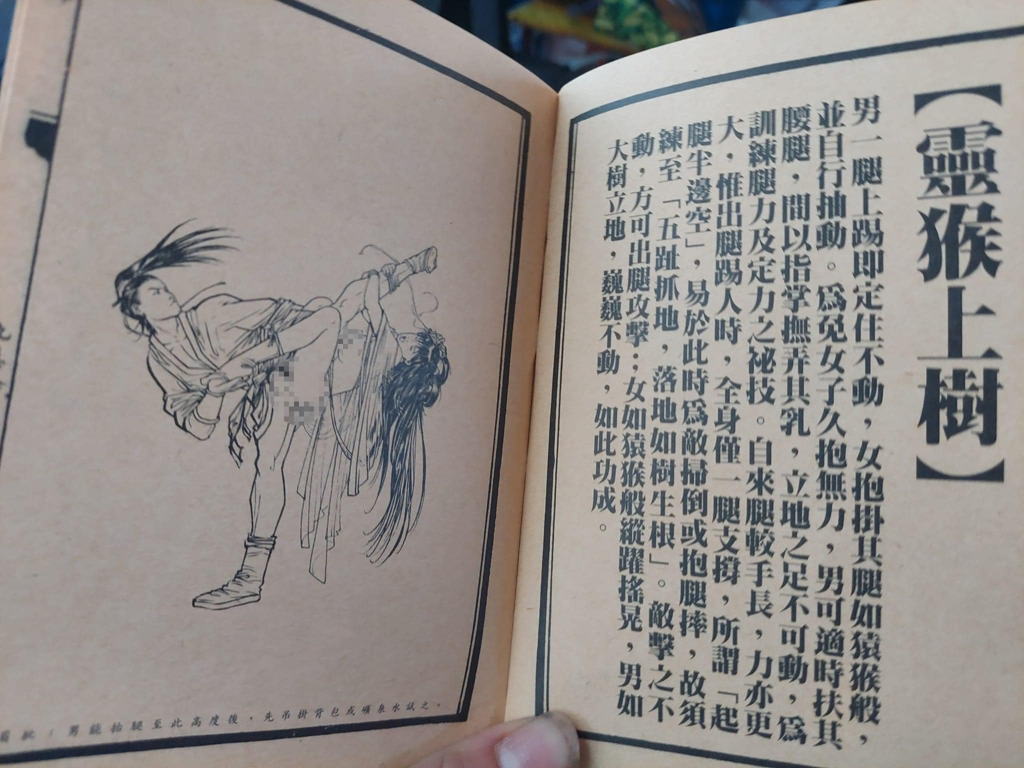 【靈猴上樹】
男一腿上踢即定住不動，女抱掛其腿如猿猴般，
並自行抽動。爲免女子久抱無力，男可適時扶其
腰腿，間以指掌撫弄其乳，立地之足不可動，爲
訓練腿力及定力之祕技。自來腿較手長，力亦更
大，惟出腿踢人時，全身僅一腿支撐，所謂「起
腿半邊空」，易於此時爲敵掃倒或抱腿摔，故須
練至「五趾抓地，落地如樹生根」。敵擊之不
動，方可出腿攻擊；女如猿猴般縱躍搖晃，男如
大樹立地，巍巍不動，如此功成。
：男能抬腿至此高度後，先吊掛背包或礦泉水試之。